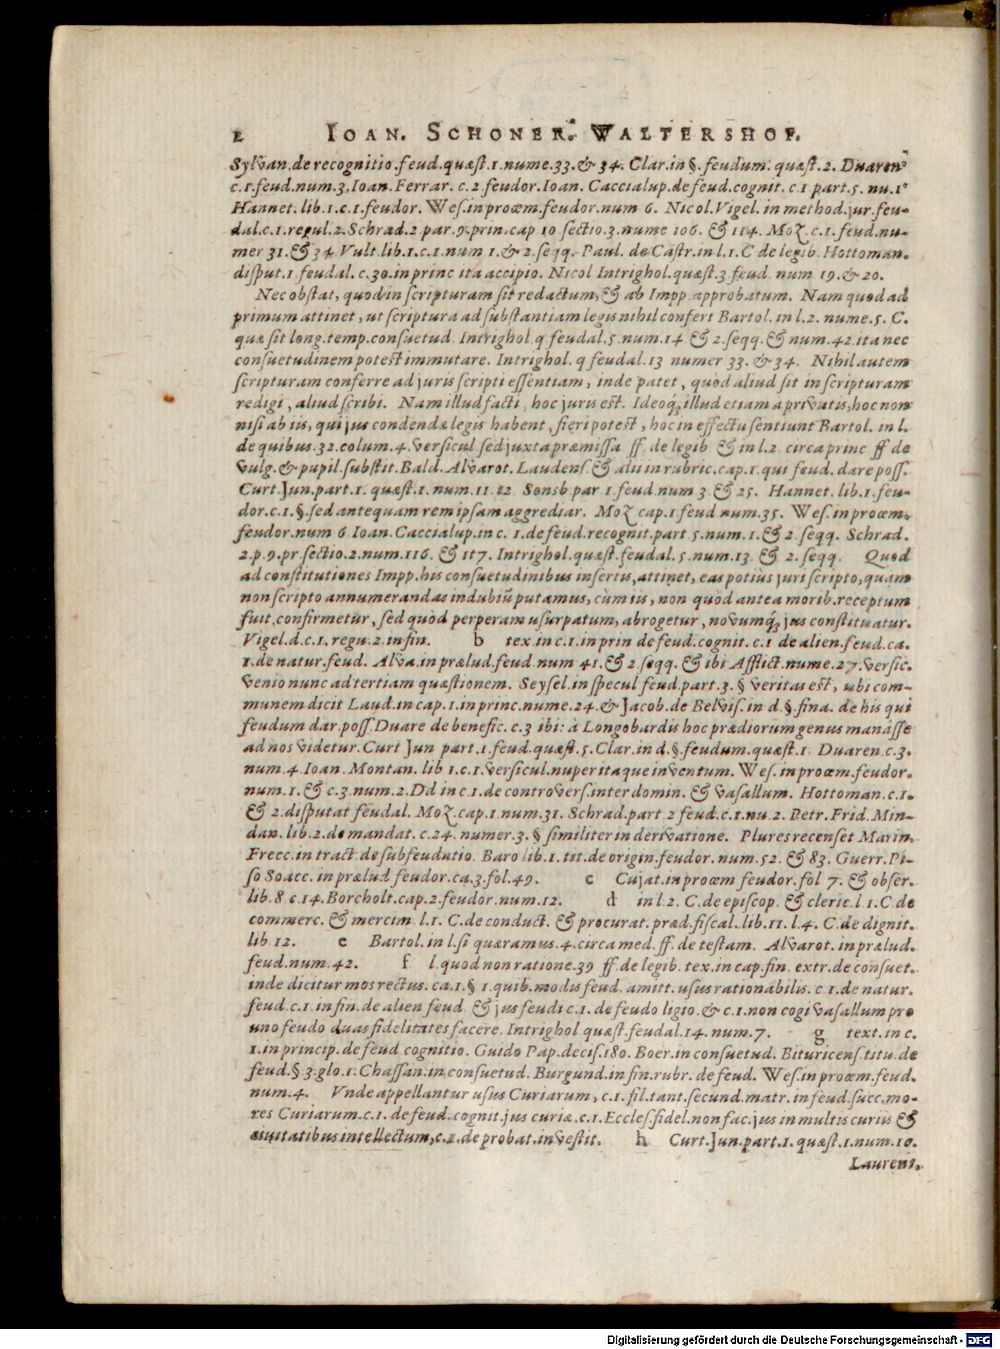 2 IOAN. SCHONER. WALTERSHOF.
Sylvan.de recognitio.feud.quæst.1.nume.33.& 34. Clar.in §. feudum. quæst.2. Duaren
c.1.feud.num.3.Ioan. Ferrar. c.2 feudor.Ioan. Caccialup.de feud.cognit. c.1 part.5. nu.1
Hannet. lib.1.c.1.feudor. Wes.in proœm.feudor.num 6. Nicol.Vigel. in method.jur.feu-
dal.c.1.regul.2.Schrad.2 par.9.prin.cap 10 sectio.3.nume 106. & 114. Moz. c.1.feud.nu-
mer 31.& 34 Vult.lib.1.c.1.num 1.& 2.seqq. Paul. de Castr.in l.1.C de legib. Hottoman.
disput.1.feudal.c.30.in princ ita accipio. Nicol Intrighol.quæst.3 feud. num 19.& 20.
Nec obstat, quod in scripturam sit redactum, & ab Impp.approbatum. Nam quod ad
primum attinet, ut scriptura ad substantiam legis nihil confert Bartol. in l.2. nume.5. C.
quæ sit long.temp.consuetud. Intrighol.q feudal.5.num.14 & 2.seqq.& num.42.ita nec
consuetudinem potest immutare. Intrighol.q feudal.13 numer 33. & 34. Nihil autem
scripturam conferre ad juris scripti essentiam, inde patet, quòd aliud sit in scripturam
redigi, aliud scribi. Nam illud facti, hoc juris est. Ideoq; illud etiam a privatis, hoc non
nisi ab iis, qui jus condendæ legis habent, fieri potest, hoc in effectu sentiunt Bartol. in l.
de quibus.32.colum.4.versicul sed juxta præmissa ff. de legib & in l.2 circa princ ff de
vulg. & pupil.substit.Bald. Alvarot. Laudens.& alii in rubric.cap.1.qui feud. dare poss.
Curt.Jun.part.1. quæst.1.num.11.12 Sonsb.par 1.feud.num 3 & 25. Hannet. lib.1.feu-
dor.c.1.§.sed antequam rem ipsam aggrediar. Moz cap.1 feud num.35. Wes.in proœm.
feudor.num 6 Ioan.Caccialup.in c. 1.de feud.recognit.part 5.num.1.& 2 seqq. Schrad.
2.p.9.pr.sectio.2.num.116. & 117. Intrighol.quæst.feudal.5.num.13. & 2.seqq. Quod
ad constitutiones Impp.his consuetudinibus insertis, attinet, eas potius juri scripto, quam
non scripto annumerandas indubiũ putamus, cùm iis, non quòd antea morib.receptum
fuit, confirmetur, sed quòd perperam usurpatum, abrogetur, novumq; jus constituatur.
Vigel.d.c.1.regu.2.in fin. b tex in c.1.in prin de feud.cognit.c.1 de alien.feud.ca.
1.de natur.feud. Alva.in prælud.feud.num 41.& 2.seqq.& ibi Afflict.nume.27.versic.
Venio nunc ad tertiam quæstionem. Seysel.in specul feud.part.3.§ veritas est, ubi com-
munem dicit Laud.in cap.1.in princ.nume.24.& Jacob.de Belvis.in d.§.fina. de his qui
feudum dar.poss.Duare de benefic.c.3 ibi: à Longobardis hoc prædiorum genus manasse
ad nos videtur.Curt Jun part.1.feud.quæst.5.Clar.in d.§.feudum.quæst.1. Duaren.c.3.
num.4 Ioan.Montan. lib 1.c.1.versicul.nuper itaque inventum. Wes.in proœm.feudor.
num.1.& c.3.num.2.Dd in c.1.de controvers.inter domin. & vasallum. Hottoman.c.1.
& 2.disputat feudal. Moz.cap.1.num.31. Schrad.part 2 feud.c.1.nu.2. Petr. Frid.Min-
dan.lib.2.de mandat. c.24. numer.3. § similiter in derivatione. Plures recenset Marin.
Frecc.in tract de subfeudatio. Baro lib.1.tit.de origin.feudor.num.52. & 83. Guerr.Pi-
so Soacc.in prælud feudor.ca.3.fol.49. c Cujat.in proœm feudor.fol 7. & obser.
lib.8 c.14.Borcholt.cap.2.feudor.num.12. d in l.2. C.de episcop. & cleric.l 1.C.de
commerc. & mercim.l.1. C.de conduct. & procurat.præd.fiscal.lib.11.l.4. C.de dignit.
lib 12. e Bartol.in l.si quæramus.4.circa med.ff.de testam. Alvarot.in prælud.
feud.num.42. f l.quod non ratione.39 ff.de legib.tex.in cap.fin. extr.de consuet.
inde dicitur mos rectus. ca.1.§ 1.quib.modis feud. amitt. usus rationabilis. c 1.de natur.
feud.c.1.in fin.de alien feud & jus feudi c.1. de feudo ligio.& c.1.non cogi vasallum pro
uno feudo duas fidelitates facere. Intrighol quæst.feudal.14.num.7. g text.in c.
1.in princip.de feud cognitio. Guido Pap.decis.180. Boer.in consuetud. Bituricens.titu.de
feud.§.3.glo.1.Chassan.in consuetud. Burgund.in fin.rubr. de feud. Wes.in proœm.feud.
num.4. Vnde appellantur usus Curiarum, c.1.fil.tant.secund.matr.in feud.succ.mo-
res Curiarum.c.1. de feud.cognit.jus curiæ.c.1.Eccles.fidel.non fac.jus in multis curiis &
civitatibus intellectum, c.1.de probat.investit. h Curt.Jun.part.1.quæst.1.num.10.
Laurent.
Digitalisierung gefördert durch die Deutsche Forschungsgemeinschaft - DFG